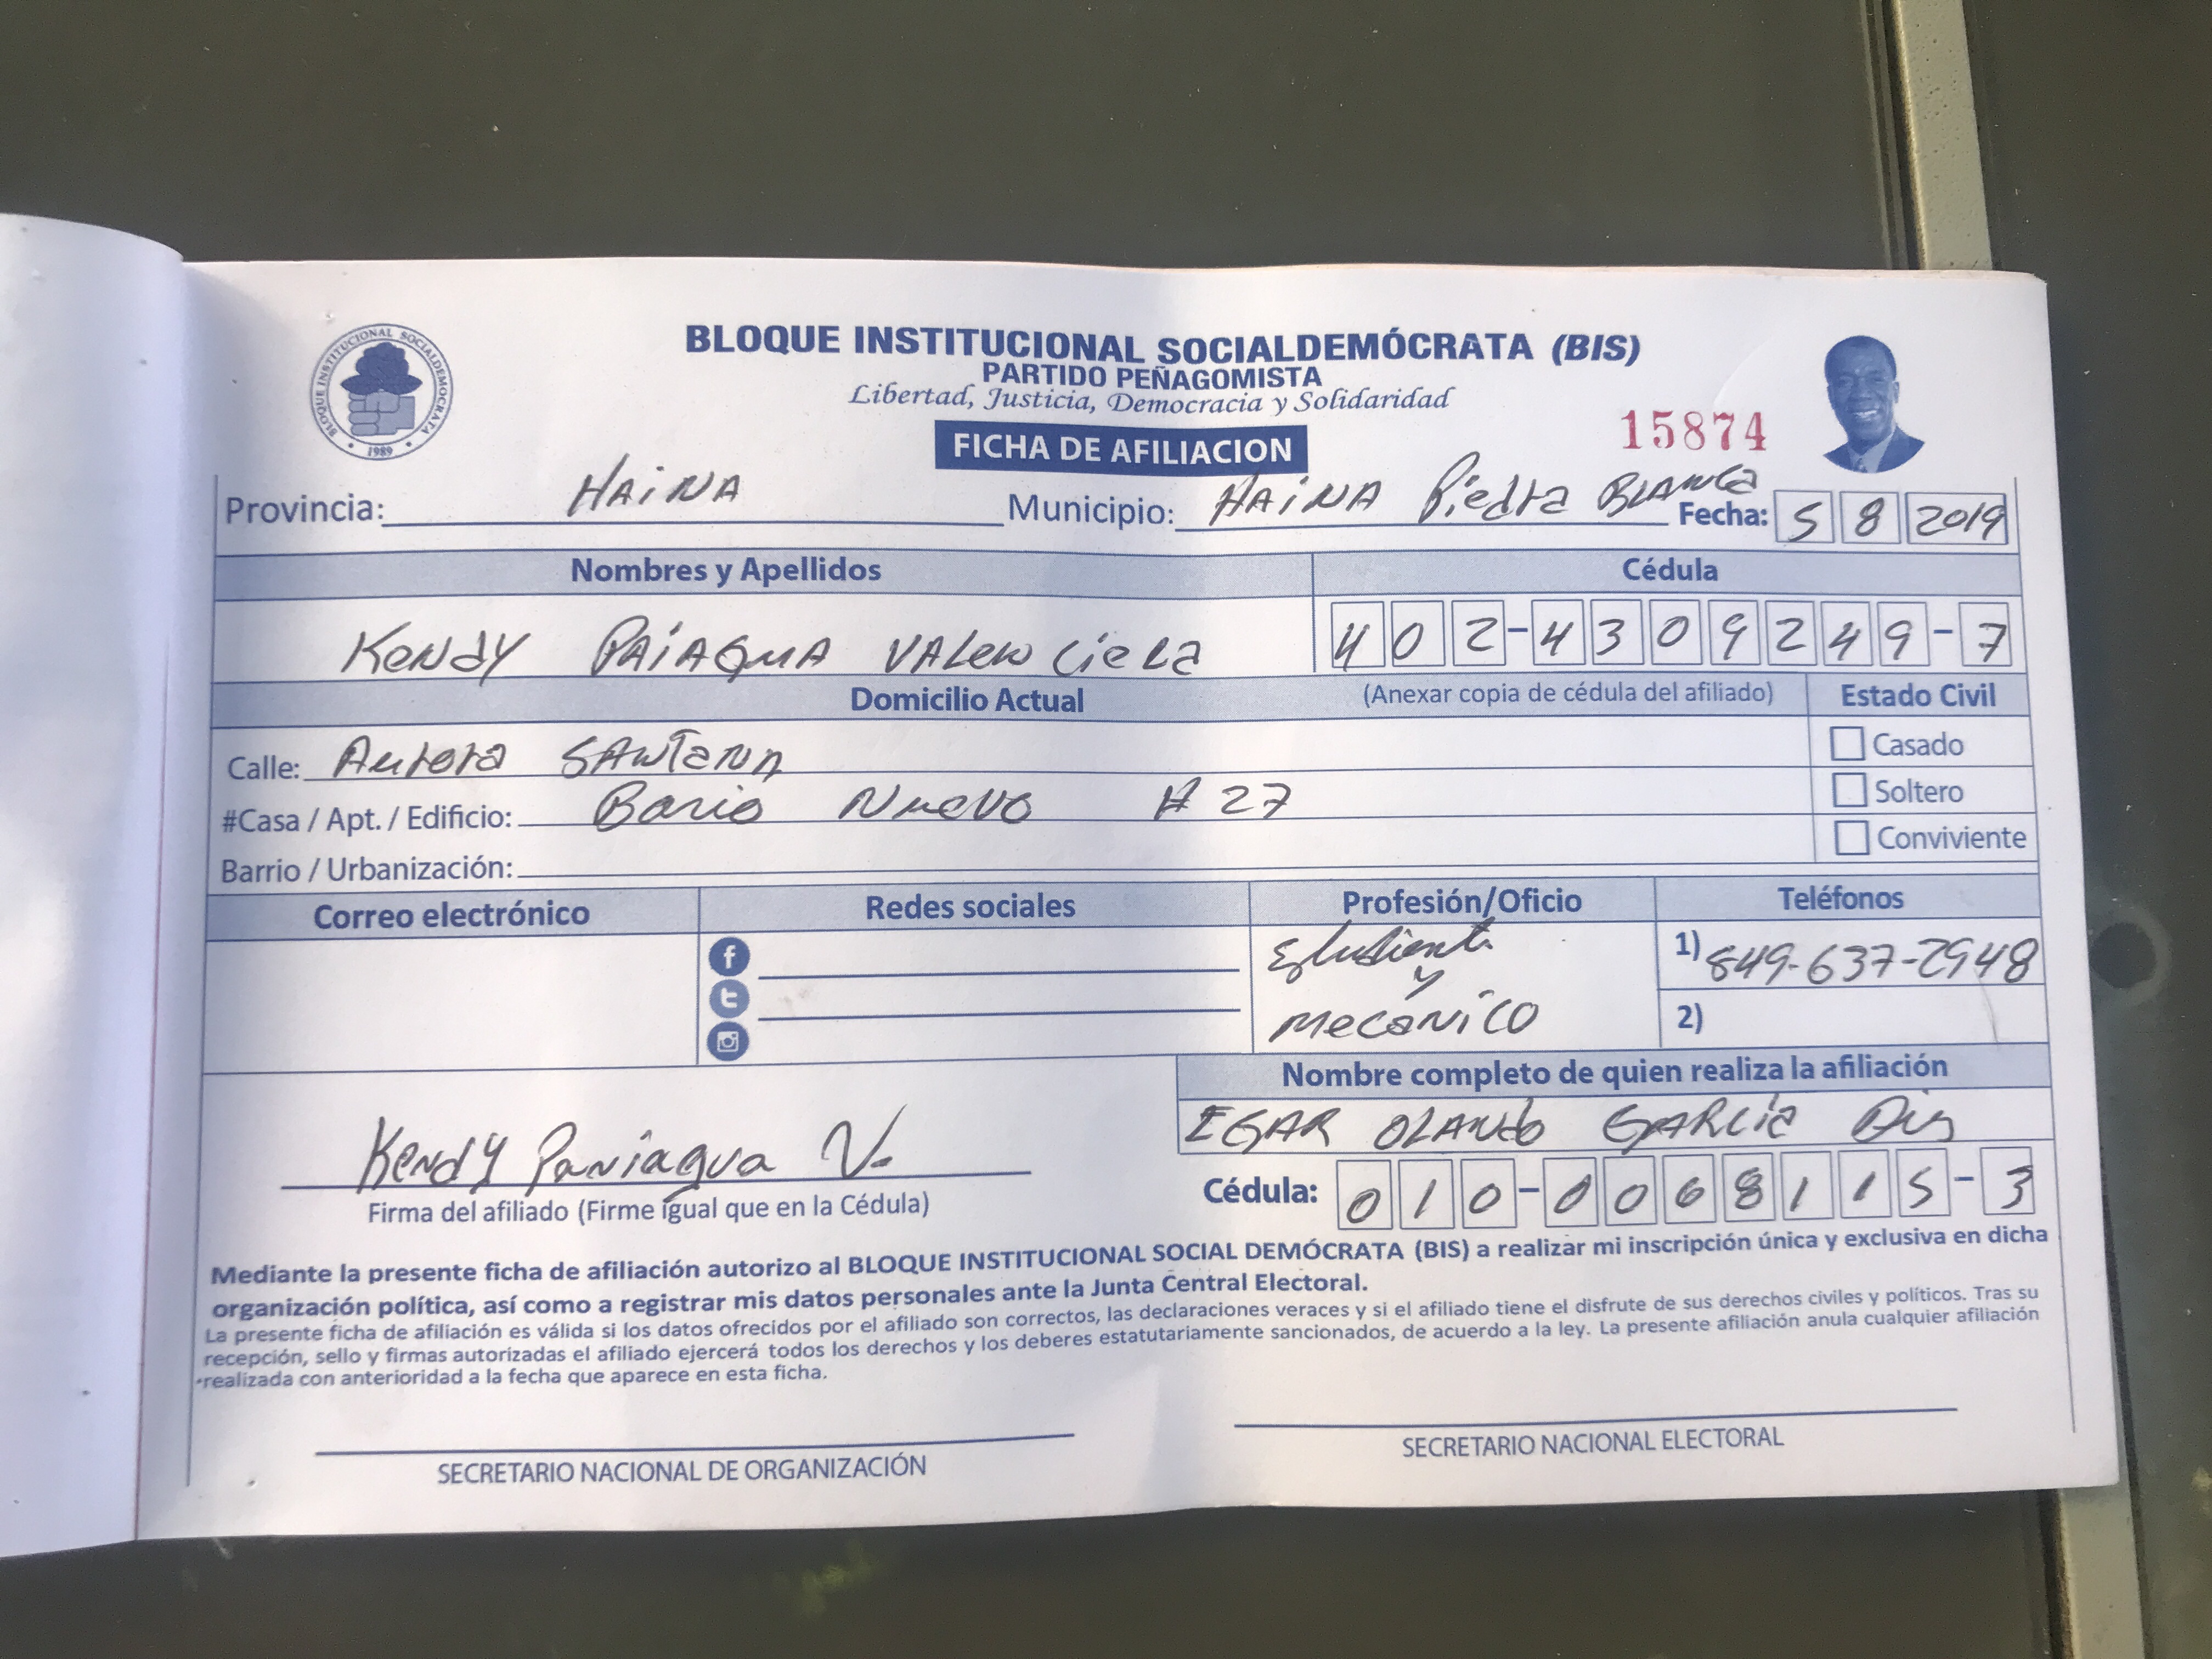 BLOQUE INSTITUCIONAL SOCIALDEMOCRATA
1989
BLOQUE INSTITUCIONAL SOCIALDEMÓCRATA (BIS)
PARTIDO PEÑAGOMISTA
Libertad, Justicia, Democracia y Solidaridad
FICHA DE AFILIACION
15874
Provincia: HAiNA Municipio: HAiNA Piedra BLANca Fecha: 5 8 2019
Nombres y Apellidos Cédula
KeNdY PAiAguA VALeNCieLa 402-4309249-7
Domicilio Actual (Anexar copia de cédula del afiliado) Estado Civil
Calle: Aurora SANTaNA Casado
#Casa / Apt. / Edificio: Bario Nuevo # 27 Soltero
Barrio / Urbanización: Conviviente
Correo electrónico Redes sociales Profesión/Oficio Teléfonos
Estudiante y mecaNiCO
1) 849-637-2948
2)
Nombre completo de quien realiza la afiliación
EGAR OLANdo GARCia
Kendy Paniagua V.
Firma del afiliado (Firme igual que en la Cédula)
Cédula: 010-0068115-3
Mediante la presente ficha de afiliación autorizo al BLOQUE INSTITUCIONAL SOCIAL DEMÓCRATA (BIS) a realizar mi inscripción única y exclusiva en dicha
organización política, así como a registrar mis datos personales ante la Junta Central Electoral.
La presente ficha de afiliación es válida si los datos ofrecidos por el afiliado son correctos, las declaraciones veraces y si el afiliado tiene el disfrute de sus derechos civiles y políticos. Tras su
recepción, sello y firmas autorizadas el afiliado ejercerá todos los derechos y los deberes estatutariamente sancionados, de acuerdo a la ley. La presente afiliación anula cualquier afiliación
realizada con anterioridad a la fecha que aparece en esta ficha.
SECRETARIO NACIONAL DE ORGANIZACIÓN
SECRETARIO NACIONAL ELECTORAL